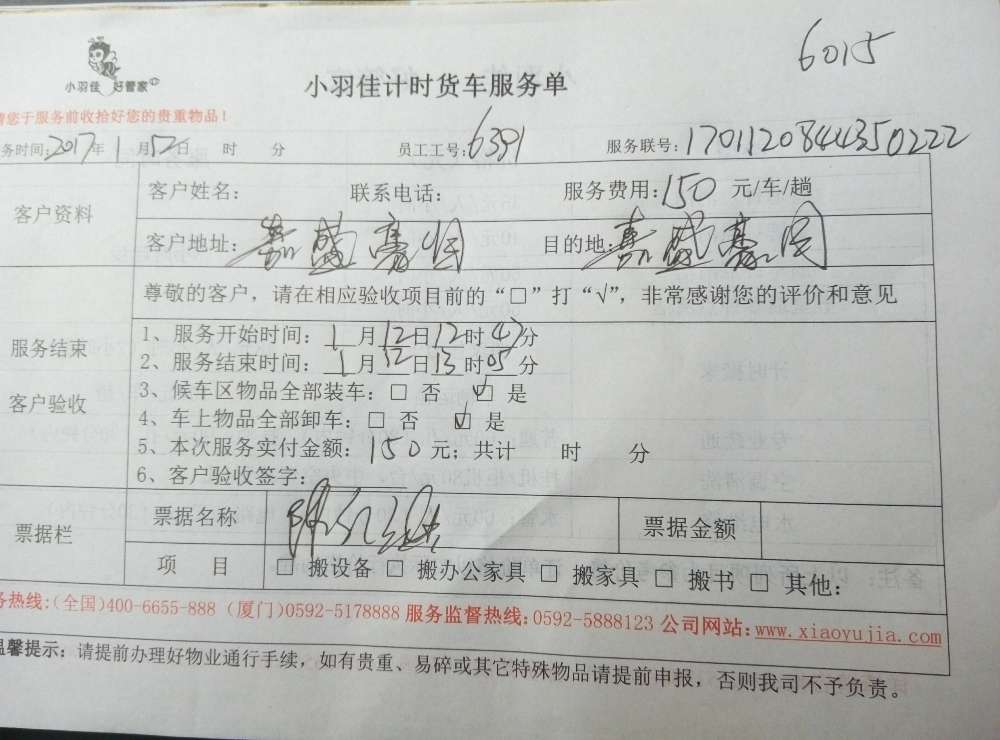 6015
小羽佳 好管家
小羽佳计时货车服务单
请您于服务前收拾好您的贵重物品！
务时间:2017年1月12日 时 分 员工工号:6391 服务联号:17011208444350222
客户资料
客户姓名: 联系电话: 服务费用:150元/车/趟
客户地址:嘉盛豪园 目的地:嘉盛豪园
尊敬的客户，请在相应验收项目前的“□”打“√”，非常感谢您的评价和意见
服务结束
客户验收
1、服务开始时间：1月12日12时47分
2、服务结束时间：1月12日13时05分
3、候车区物品全部装车：□ 否 ☑ 是
4、车上物品全部卸车：□ 否 ☑ 是
5、本次服务实付金额：150元；共计 时 分
6、客户验收签字：
票据栏
票据名称 票据金额
项 目 □ 搬设备 □ 搬办公家具 □ 搬家具 □ 搬书 □ 其他:
务热线:(全国)400-6655-888 (厦门)0592-5178888 服务监督热线:0592-5888123 公司网站:www.xiaoyujia.com
温馨提示：请提前办理好物业通行手续，如有贵重、易碎或其它特殊物品请提前申报，否则我司不予负责。